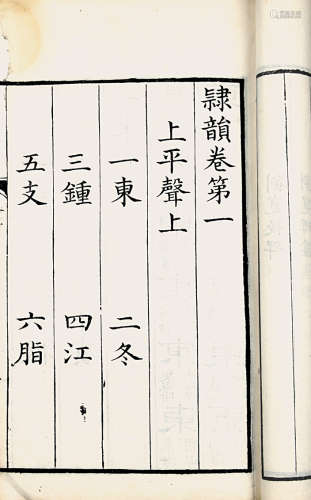 隷韻卷第一
上平聲上
一東 二冬
三鍾 四江
五支 六脂